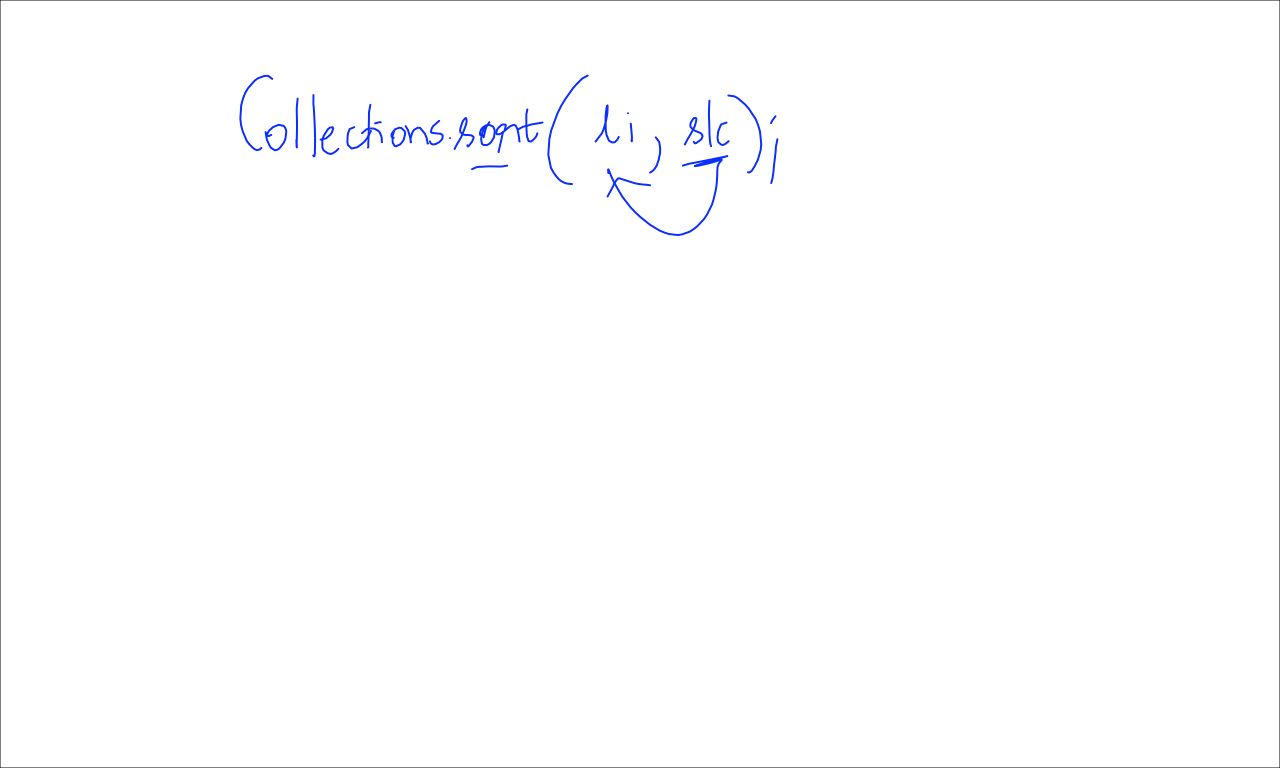 Collections.sort(li, slc);